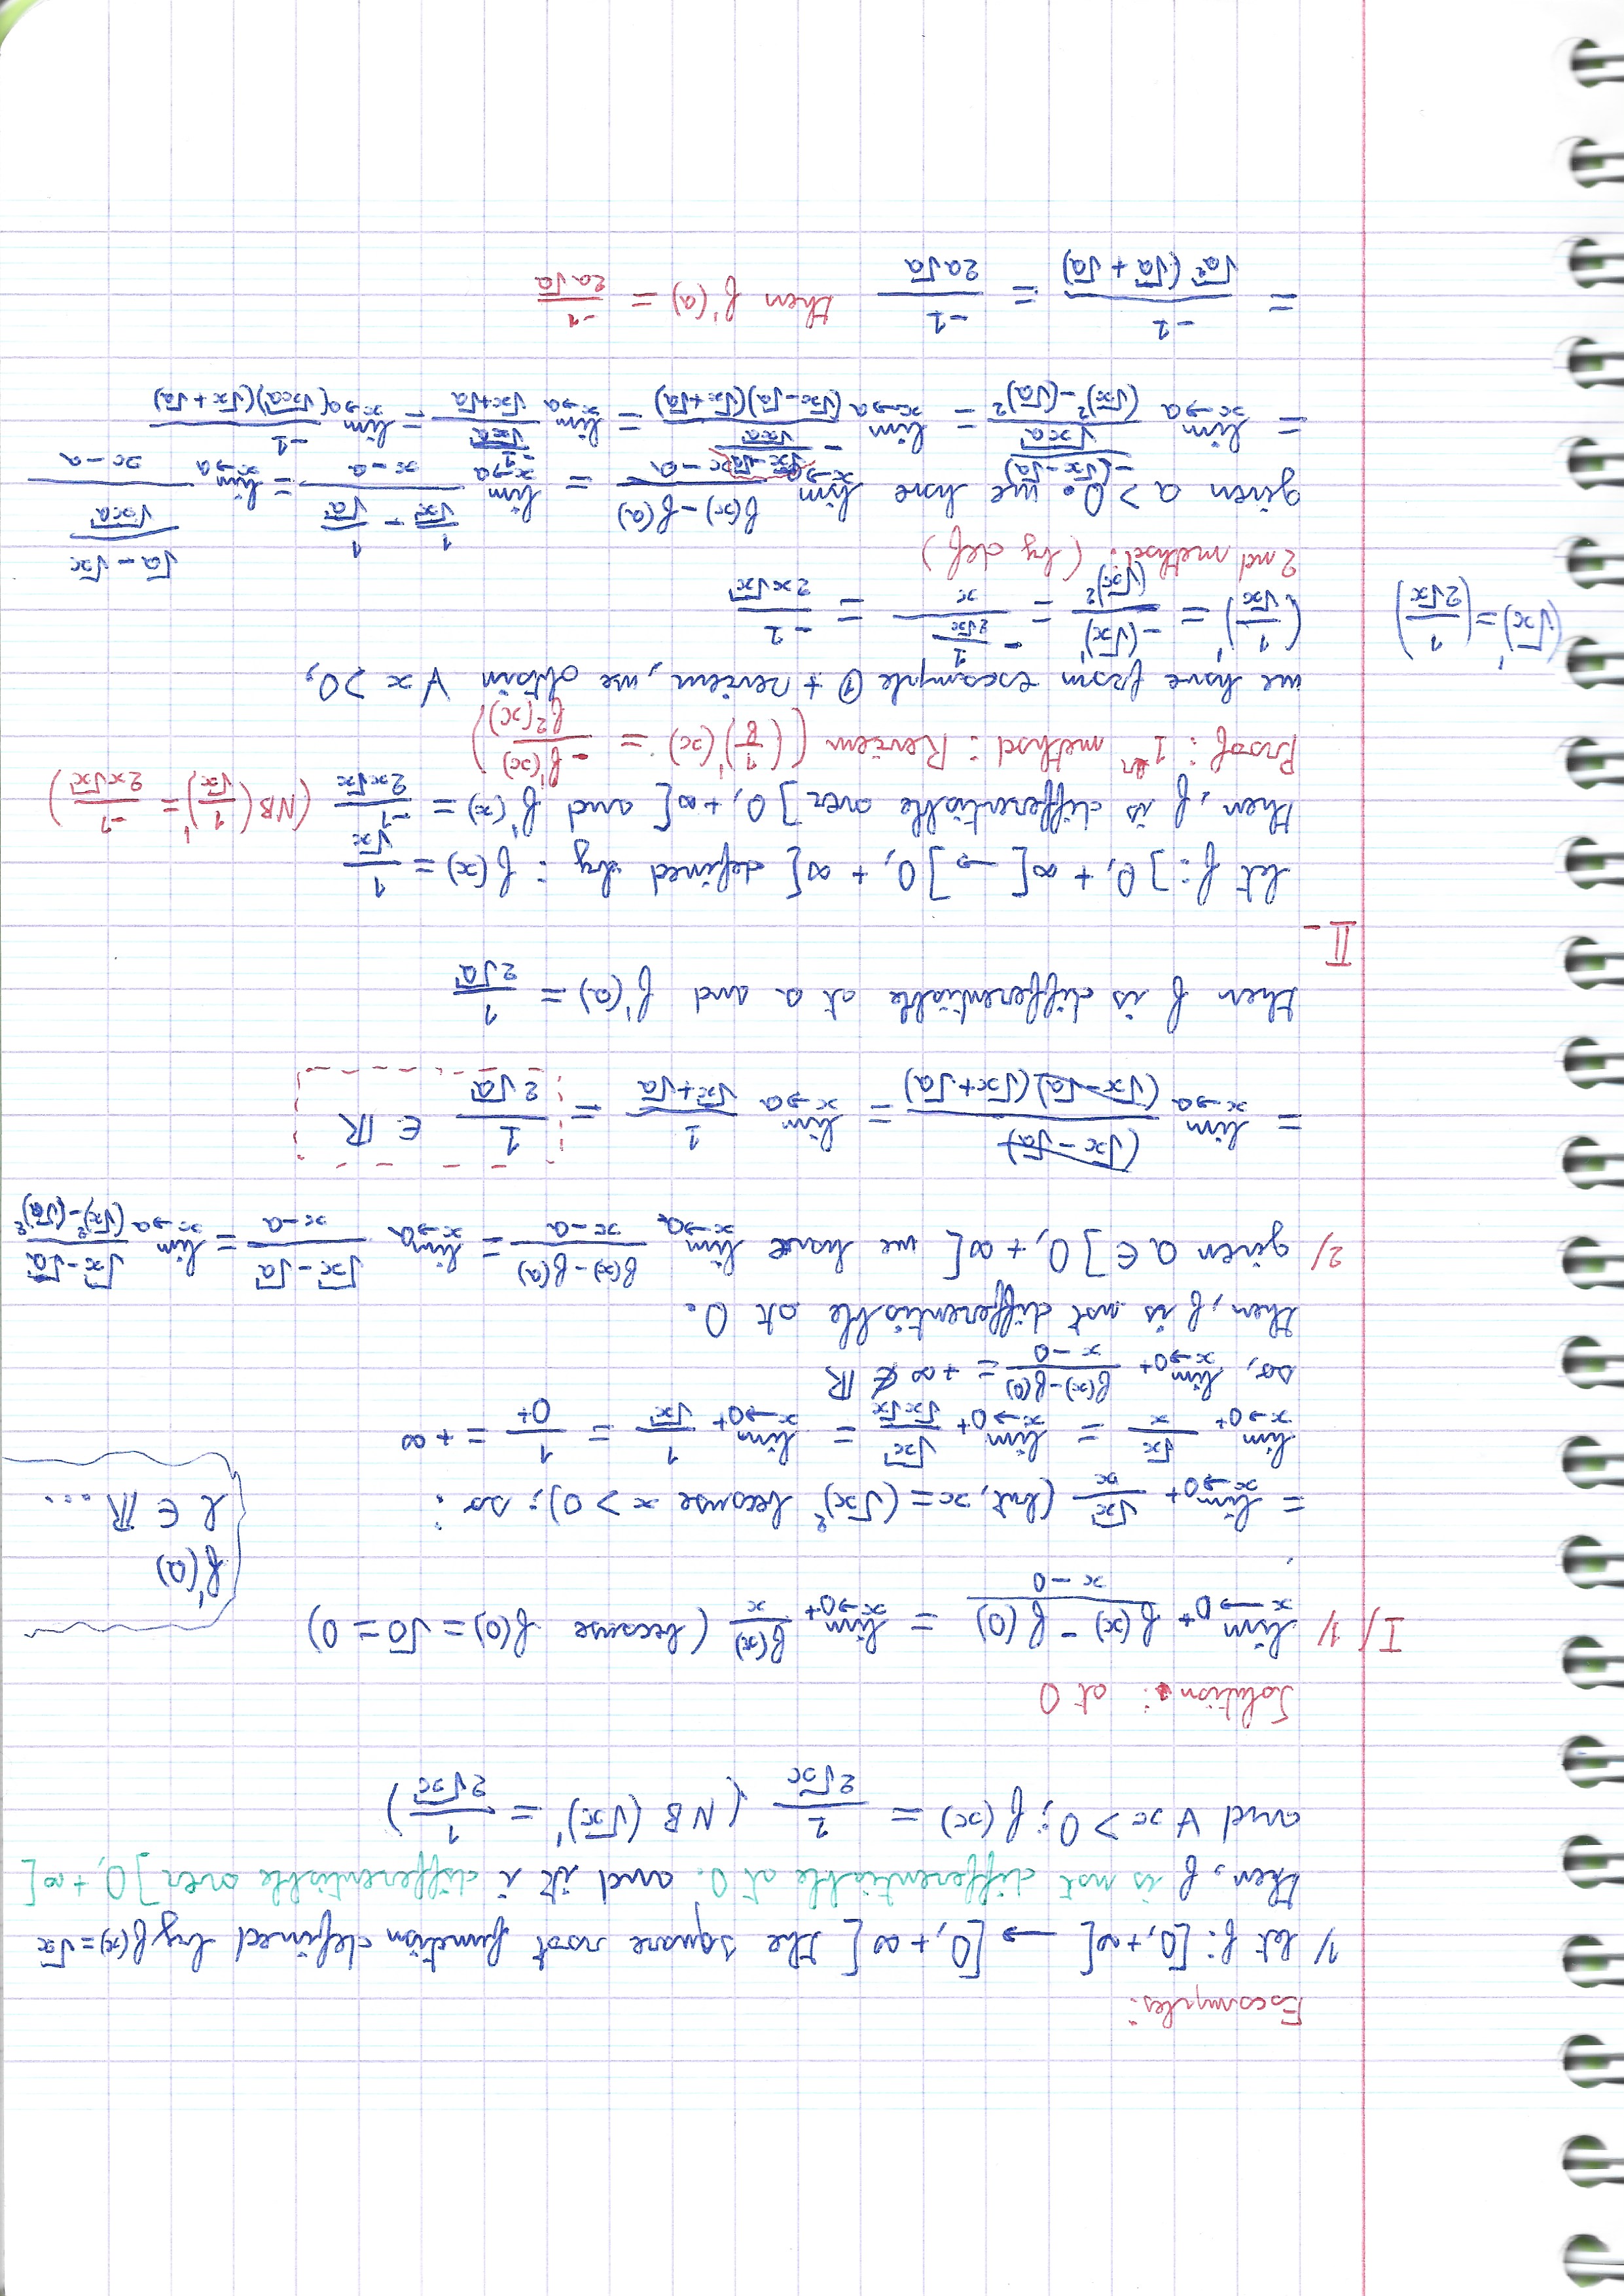 Examples:
1/ let f: [0,+∞[ → [0,+∞[ the square root function defined by f(x)=√x
then, f is not differentiable at 0. and it i differentiable over ]0,+∞[
and ∀ x > 0; f(x) = 1/(2√x) (NB (√x)' = 1/(2√x))
Solution: at 0
I/ 1/ lim x→0⁺ (f(x) - f(0))/(x-0) = lim x→0⁺ f(x)/x (because f(0) = √0 = 0)
f'(a)
l ∈ ℝ...
= lim x→0⁺ √x/x (but, x = (√x)² because x > 0); so:
lim x→0⁺ √x/x = lim x→0⁺ √x/(√x√x) = lim x→0⁺ 1/√x = 1/0⁺ = +∞
so, lim x→0⁺ (f(x)-f(0))/(x-0) = +∞ ∉ ℝ
then, f is not differentiable at 0.
2/ given a ∈ ]0,+∞[ we have lim x→a (f(x)-f(a))/(x-a) = lim x→a (√x-√a)/(x-a) = lim x→a (√x-√a)/((√x)²-(√a)²)
= lim x→a (√x-√a)/((√x-√a)(√x+√a)) = lim x→a 1/(√x+√a) = 1/(2√a) ∈ ℝ
then f is differentiable at a and f'(a) = 1/(2√a)
II-
let f: ]0,+∞[ → ]0,+∞[ defined by: f(x) = 1/√x
then, f is differentiable over ]0,+∞[ and f'(x) = -1/(2x√x) (NB (1/√x)' = -1/(2x√x))
Proof: 1er method: Review ((1/f)'(x) = -f'(x)/f²(x))
we have from example ① + review, we obtain ∀ x > 0,
(√x)' = (1/(2√x))
(1/√x)' = -(√x)'/(√x)² = -(1/(2√x))/x = -1/(2x√x)
2nd method: (by def)
given a > 0. we have lim x→a (f(x)-f(a))/(x-a) = lim x→a (1/√x - 1/√a)/(x-a) = lim x→a ((√a-√x)/√xa)/(x-a)
= lim x→a (-(√x-√a)/√xa)/((√x)²-(√a)²) = lim x→a (-(√x-√a)/√xa)/((√x-√a)(√x+√a)) = lim x→a (-1/√xa)/(√x+√a) = lim x→a -1/((√xa)(√x+√a))
= -1/(√a²(√a+√a)) = -1/(2a√a) then f'(a) = -1/(2a√a)